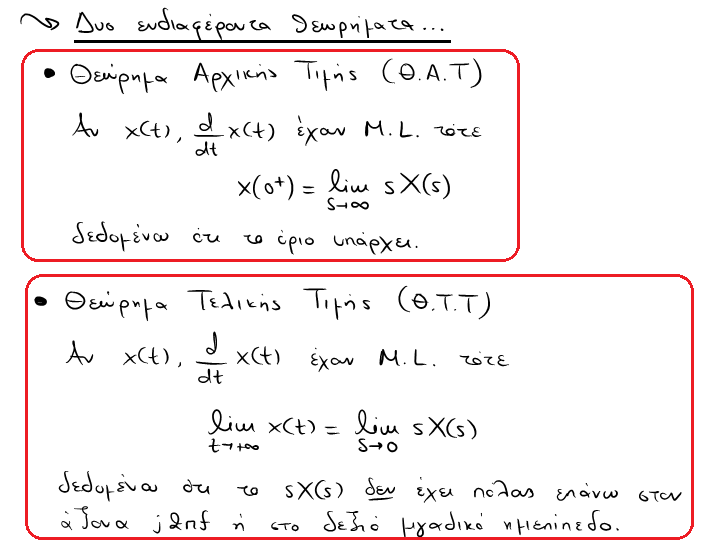 Δυο ενδιαφέροντα θεωρήματα...
• Θεώρημα Αρχικής Τιμής (Θ.Α.Τ)
Αν x(t), d/dt x(t) έχουν M.L. τότε
x(0⁺) = lim_{s→∞} sX(s)
δεδομένου ότι το όριο υπάρχει.
• Θεώρημα Τελικής Τιμής (Θ.Τ.Τ)
Αν x(t), d/dt x(t) έχουν M.L. τότε
lim_{t→+∞} x(t) = lim_{s→0} sX(s)
δεδομένου ότι το sX(s) δεν έχει πόλους επάνω στον
άξονα j2πf ή στο δεξιό μιγαδικό ημιεπίπεδο.